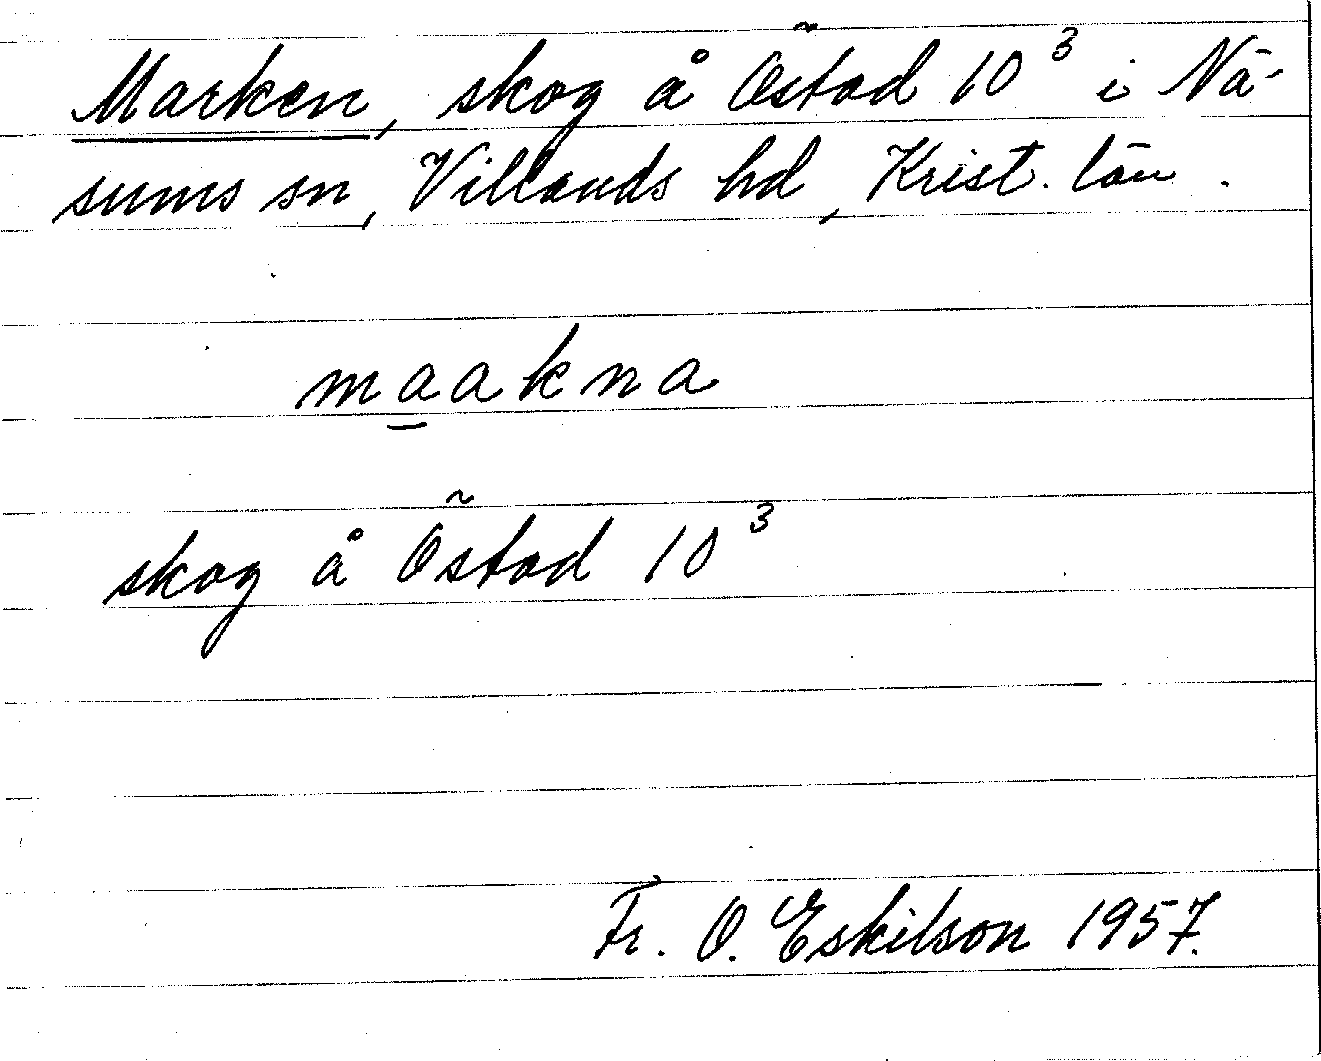 Marken, skog å Östad 10³ i Nä-
sums sn, Villands hd, Krist. län.
maakna
skog å Östad 10³
Fr. O. Eskilson 1957.